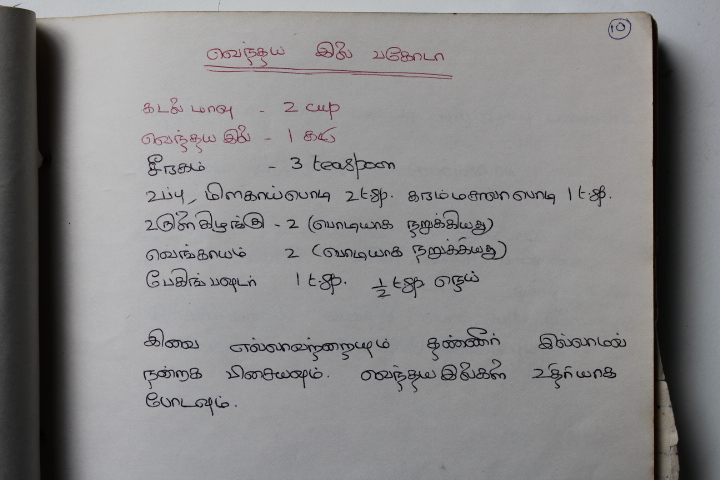 10
வெந்தய இலை பகோடா
கடலை மாவு - 2 cup
வெந்தய இலை - 1 கட்டு
சீரகம் - 3 teaspoon
உப்பு, மிளகாய்பொடி 2 t.sp. கரம்மசாலா பொடி 1 t.sp.
உருளைகிழங்கு - 2 (பொடியாக நறுக்கியது)
வெங்காயம் 2 (பொடியாக நறுக்கியது)
பேகிங் பவுடர் 1 t.sp. 1/2 t.sp நெய்
இவை எல்லாவற்றையும் தண்ணீர் இல்லாமல்
நன்றாக பிசையவும். வெந்தய இலைகளை உதிரியாக
போடவும்.